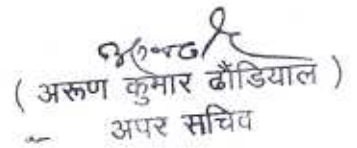 ( अरूण कुमार ढौंडियाल )
अपर सचिव